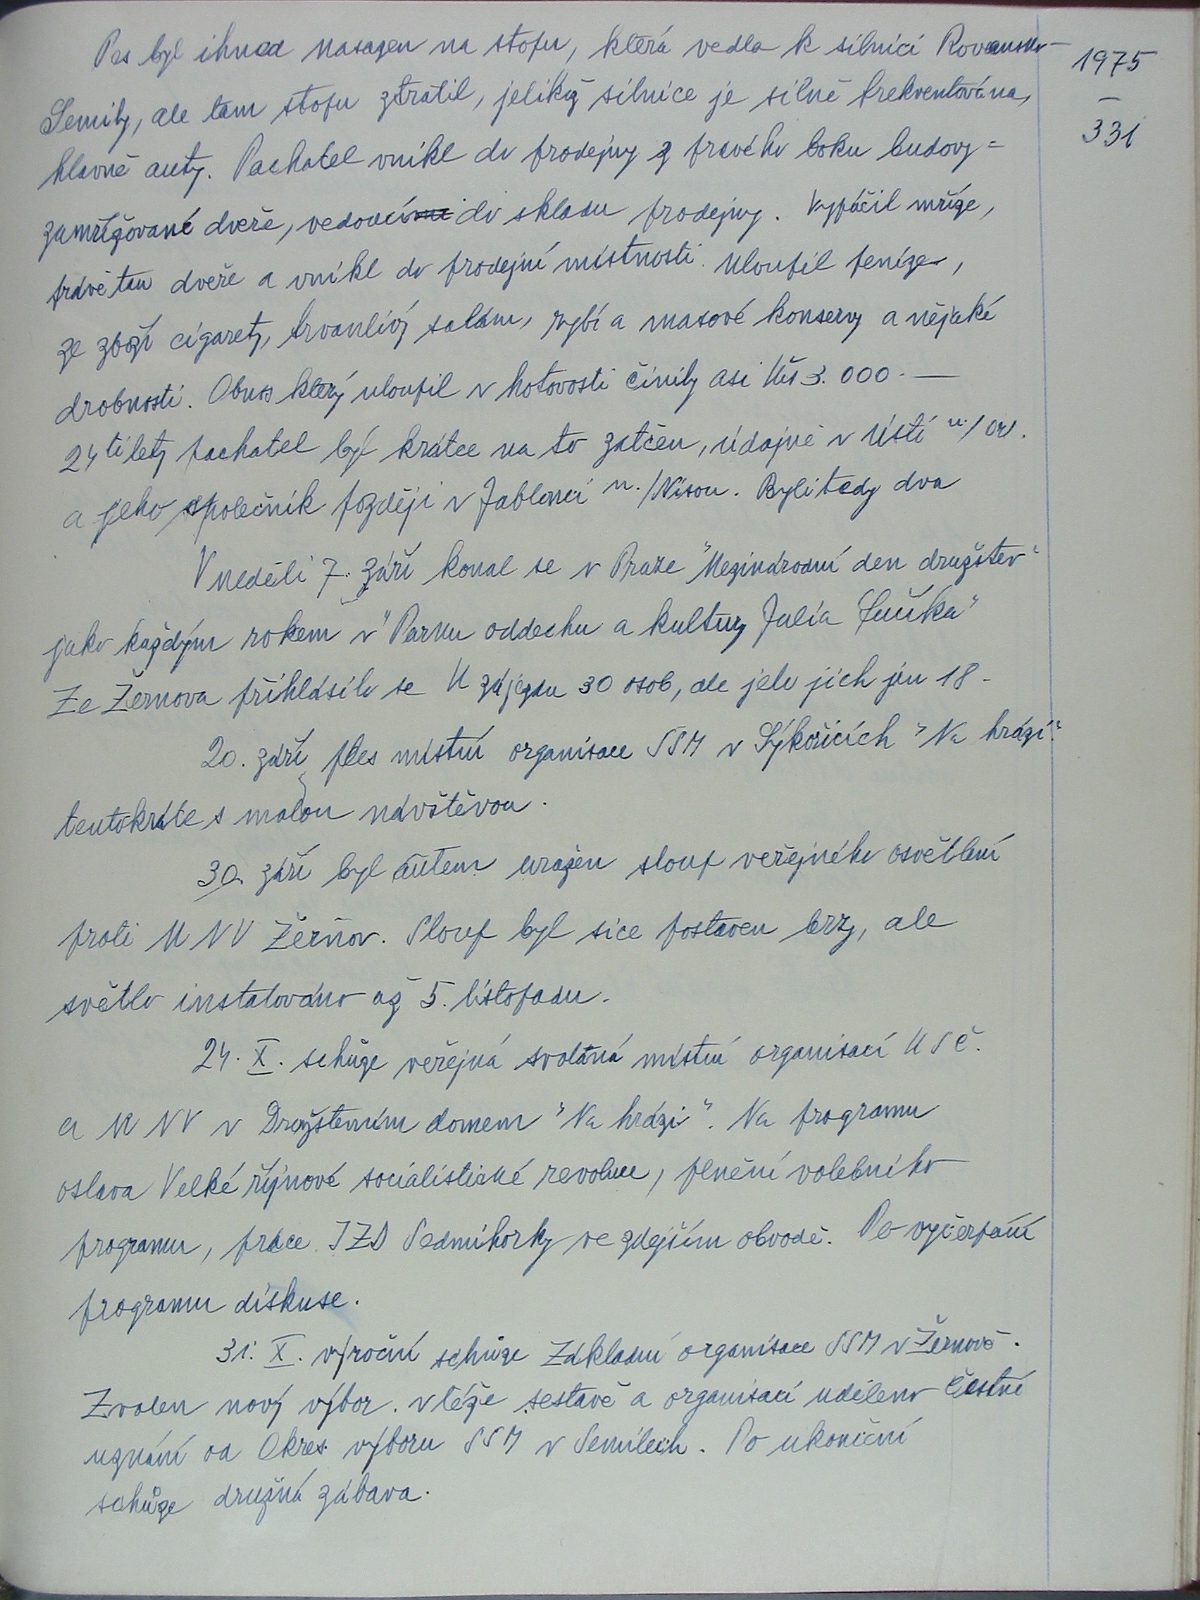 Pes byl ihned nasazen na stopu, která vedla k silnici Rovensko-
Semily, ale tam stopu ztratil, jelikož silnice je silně frekventována,
hlavně auty. Pachatel vnikl do prodejny z pravého boku budovy -
zamřížované dveře, vedoucí do skladu prodejny. Vypáčil mříže,
dveře a vnikl do prodejní místnosti. Uloupil peníze,
ze zboží cigarety, trvanlivý salám, rybí a masové konservy a nějaké
drobnosti. Obnos který uloupil v hotovosti činily asi Kčs 3.000.—
24 tiletý pachatel byl krátce na to zatčen, údajně v Ústí n./Orl.
a jeho společník později v Jablonci n./Nisou. Byli tedy dva
V neděli 7. září konal se v Praze "Mezinárodní den družstev"
jako každým rokem v "Parku oddechu a kultury Julia Fučíka"
Ze Žernova přihlásilo se k zájezdu 30 osob, ale jelo jich jen 18-
20. září ples místní organisace SSM v Sýkořicích "Na hrázi"
tentokráte s malou návštěvou.
30. září byl autem uražen sloup veřejného osvětlení
proti MNV Žernov. Sloup byl sice postaven brzy, ale
světlo instalováno až 5. listopadu.
24. X. schůze veřejná svolaná místní organisací KSČ.
a MNV v Družstevním domem "Na hrázi". Na programu
oslava Velké říjnové socialistické revoluce, plnění volebního
programu, práce JZD Sedmihorky ve zdejším obvodě. Po vyčerpání
programu diskuse.
31. X. výroční schůze Základní organisace SSM v Žernově.
Zvolen nový výbor. v téže sestavě a organisaci uděleno čestné
uznání od Okres. výboru SSM v Semilech. Po ukončení
schůze družná zábava.
1975
—
331